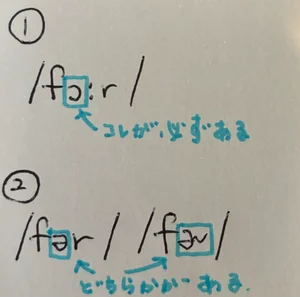 ①
/fɔːr/
コレが、必ずある
②
/fər/ /fɚ/
どちらかがある.